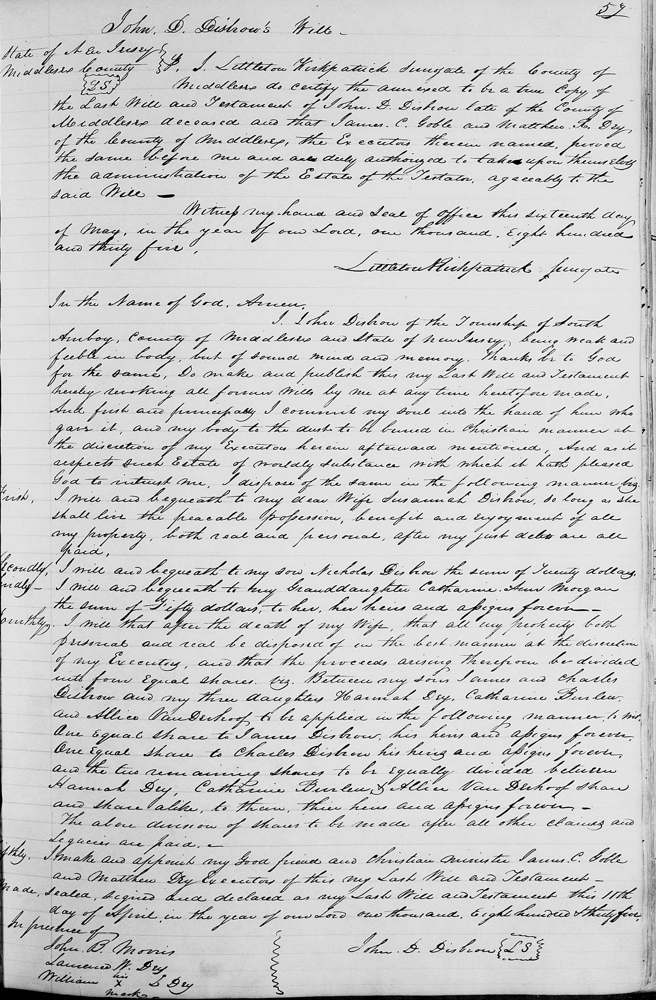 57
John. D. Disbrow's Will -
State of New Jersey
Middlesex County
{LS}
I, Littleton Kirkpatrick Surrogate of the County of
Middlesex do certify the annexed to be a true Copy of
the Last Will and Testament of John. D. Disbrow late of the County of
Middlesex deceased and that James. C. Goble and Matthew Dey
of the County of Middlesex, the Executors therein named, proved
the same before me and are duly authorized to take upon themselves
the administration of the Estate of the Testator, agreeably to the
said Will -
Witness my hand and Seal of office this sixteenth day
of May, in the year of our Lord, one thousand, Eight hundred
and thirty five,
Littleton Kirkpatrick Surrogate
In the Name of God, Amen,
I. John Disbrow of the Township of South
Amboy, County of Middlesex and State of New Jersey, being weak and
feeble in body, but of sound mind and memory. Thanks be to God
for the same, Do make and publish this my Last Will and Testament
hereby revoking all former Wills by me at any time heretofore made,
And first and principally I commit my soul into the hand of him who
gave it, and my body to the dust to be buried in Christian manner at
the discretion of my Executors herein afterward mentioned, And as it
respects such Estate of worldly substance with which it hath pleased
God to intrust me, I dispose of the same in the following manner viz
First, I will and bequeath to my dear Wife Susannah Disbrow, so long as she
shall live the peacable possession, benefit and enjoyment of all
my property, both real and personal, after my just debts are all
paid,
Secondly, I will and bequeath to my son Nicholas Disbrow the sum of Twenty dollars,
I will and bequeath to my Granddaughter Catharine Ann Morgan
the sum of Fifty dollars, to her, her heirs and assigns forever -
Fourthly, I will that after the death of my Wife, that all my property both
personal and real be disposed of in the best manner at the discretion
of my Executors, and that the proceeds arising therefrom be divided
into four Equal shares. viz. Between my sons James and Charles
Disbrow and my three daughters Hannah Dey, Catharine Burlew,
and Allice VanDerhoof, to be applied in the following manner, to wit,
One Equal share to James Disbrow, his heirs and assigns forever,
One Equal share to Charles Disbrow his heirs and assigns forever,
and the two remaining shares to be Equally divided between
Hannah Dey, Catharine Burlew & Allice Van Derhoof share
and share alike, to them, their heirs and assigns forever -
The above division of shares to be made after all other clauses and
Legacies are paid. -
I make and appoint my Good friend and Christian minister James. C. Goble
and Matthew Dey Executors of this my Last Will and Testament -
Made, sealed, signed and declared as my Last Will and Testament this 11th
day of April in the year of our Lord one thousand, Eight hundred & thirty five
In presence of
John. D. Disbrow {LS}
John. B. Morris
Laurence W. Dey
his
William X D Dey
mark -